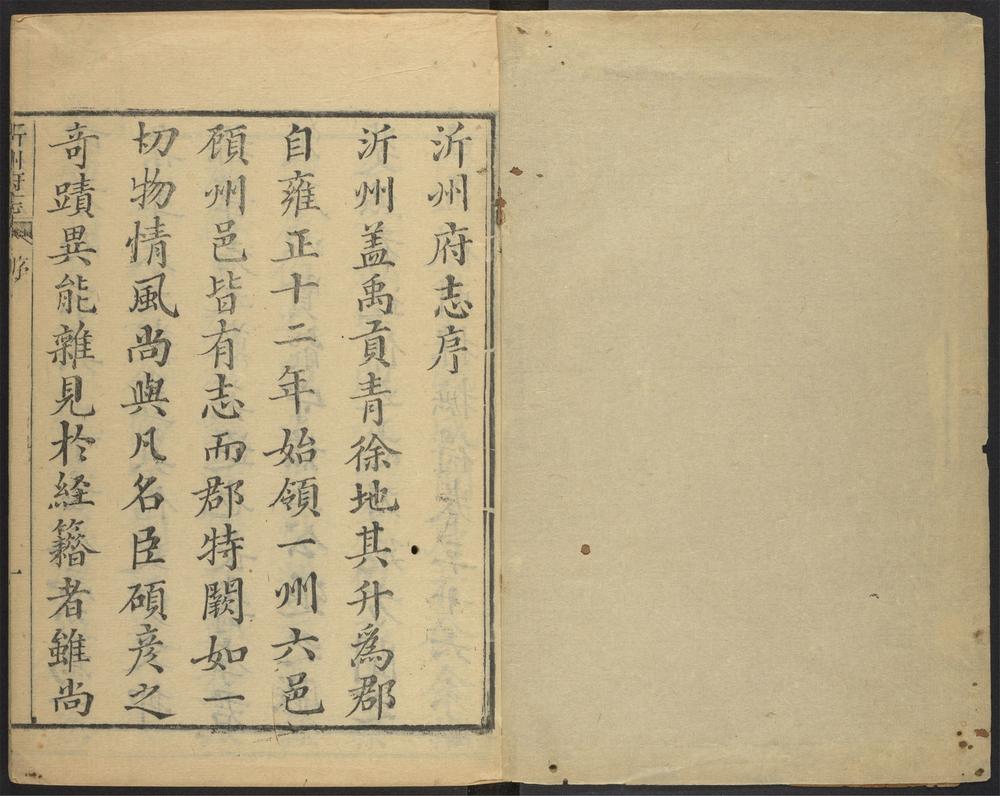 沂州府志序
沂州盖禹貢青徐地其升爲郡
自雍正十二年始領一州六邑
頋州邑皆有志而郡特闕如一
切物情風尚與凡名臣碩彦之
奇蹟異能雜見於経籍者雖尚
沂州府志 序 一